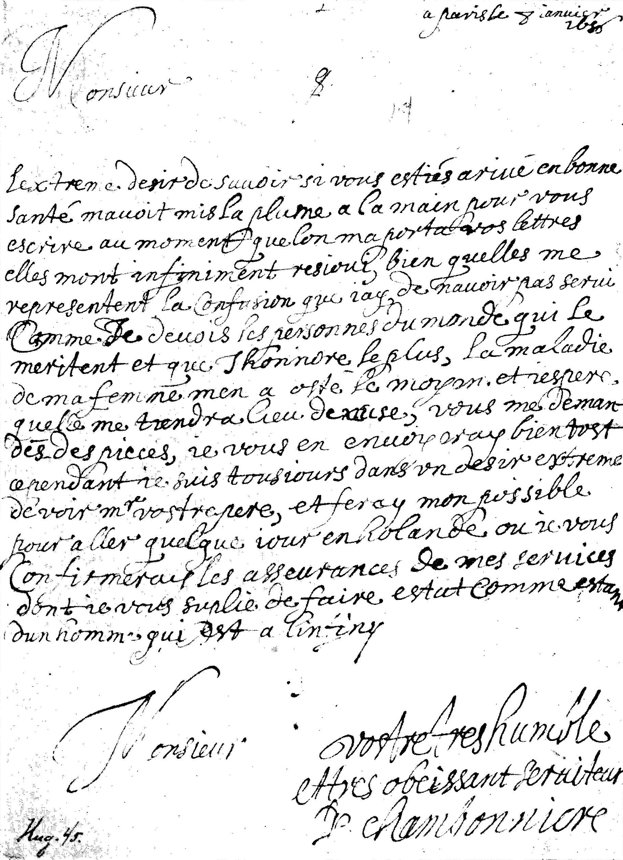 a paris le 8 ianvier
1656
Monsieur
8
14
lextreme desir de savoir si vous estiés arivé en bonne
santé mavoit mis la plume a la main pour vous
escrire au moment que lon ma porta vos lettres
elles mont infiniment resioui, bien quelles me
representent la Confusion que iay de navoir pas servi
Comme Je devois les personnes du monde qui le
meritent et que Jhonnore le plus, la maladie
de ma femme men a osté le moyen. et iespere
quelle me tiendra lieu dexcuse, vous me deman
dés des pieces, ie vous en envoyeray bien tost
cependant ie suis tousiours dans vn desir extreme
de voir mr vostre pere, et feray mon possible
pour aller quelque iour en holande ou ie vous
Confirmerais les asseurances de mes services
dont ie vous suplie de faire estat Comme estant
dun homme qui est a linfiny
Monsieur
vostre tres humble
et tres obeissant serviteur
chambonniere
Hug. 45.